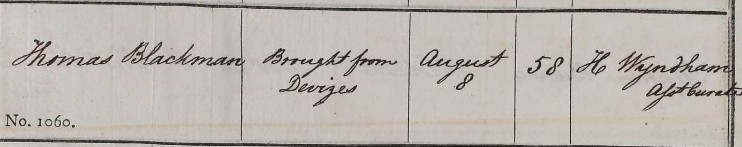 Thomas Blackman Brought from August 58 H Wyndham
Devizes 8 Asst Curate
No. 1060.